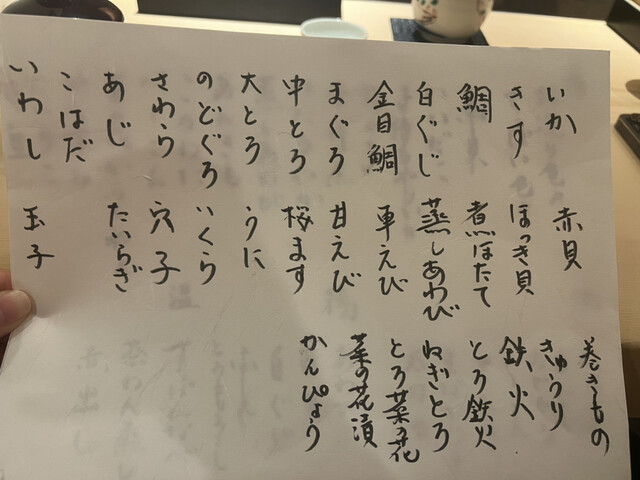 いか
きす
鯛
白ぐじ
金目鯛
まぐろ
中とろ
大とろ
のどぐろ
さわら
あじ
こはだ
いわし
赤貝
ほっき貝
煮ほたて
蒸しあわび
車えび
甘えび
桜ます
うに
いくら
穴子
たいらぎ
玉子
巻きもの
きゅうり
鉄火
とろ鉄火
ねぎとろ
とろ菜の花
菜の花漬
かんぴょう